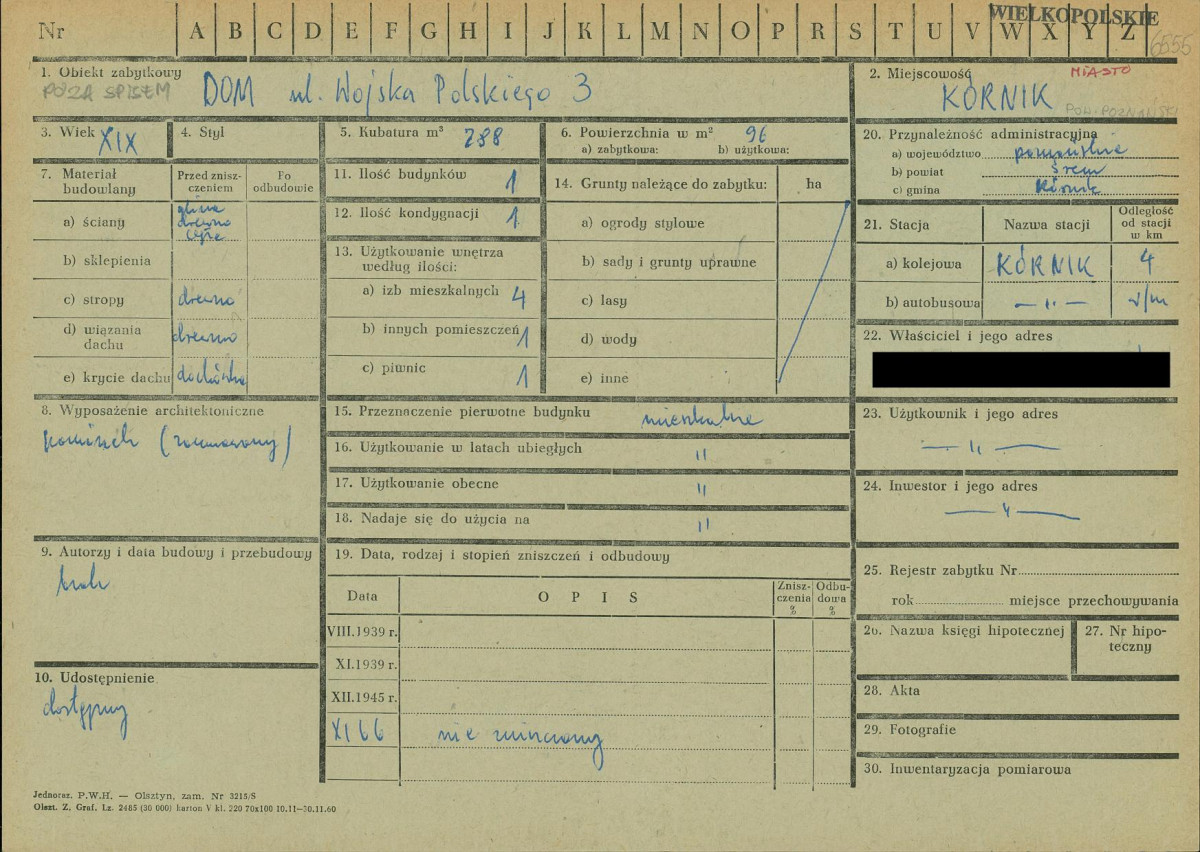 Nr A B C D E F G H I J K L M N O P R S T U V W X Y Z
WIELKOPOLSKIE
6555
1. Obiekt zabytkowy
POZA SPISEM
DOM ul. Wojska Polskiego 3
2. Miejscowość
MIASTO
KÓRNIK
POW. POZNAŃSKI
3. Wiek XIX
4. Styl
5. Kubatura m³ 288
6. Powierzchnia w m² 96
a) zabytkowa: b) użytkowa:
20. Przynależność administracyjna
a) województwo poznańskie
b) powiat Śrem
c) gmina Kórnik
7. Materiał budowlany
Przed zniszczeniem
Po odbudowie
a) ściany glina drewno cegła
b) sklepienia
c) stropy drewno
d) wiązania dachu drewno
e) krycie dachu dachówka
11. Ilość budynków 1
12. Ilość kondygnacji 1
13. Użytkowanie wnętrza
według ilości:
a) izb mieszkalnych 4
b) innych pomieszczeń 1
c) piwnic 1
14. Grunty należące do zabytku: ha
a) ogrody stylowe
b) sady i grunty uprawne
c) lasy
d) wody
e) inne
21. Stacja Nazwa stacji Odległość od stacji w km
a) kolejowa KÓRNIK 4
b) autobusowa — " — w/m
22. Właściciel i jego adres
8. Wyposażenie architektoniczne
kominek (zamurowany)
15. Przeznaczenie pierwotne budynku mieszkalne
16. Użytkowanie w latach ubiegłych "
17. Użytkowanie obecne "
18. Nadaje się do użycia na "
23. Użytkownik i jego adres
— " —
24. Inwestor i jego adres
— " —
9. Autorzy i data budowy i przebudowy
brak
19. Data, rodzaj i stopień zniszczeń i odbudowy
Data OPIS Zniszczenia % Odbudowa %
VIII.1939 r.
XI.1939 r.
XII.1945 r.
XI 66 nie zniszczony
25. Rejestr zabytku Nr
rok miejsce przechowywania
26. Nazwa księgi hipotecznej
27. Nr hipoteczny
28. Akta
29. Fotografie
30. Inwentaryzacja pomiarowa
10. Udostępnienie
dostępny
Jednoraz. P.W.H. — Olsztyn, zam. Nr 3215/S
Olszt. Z. Graf. Lz. 2485 (30 000) karton V kl. 220 70x100 10.11—30.11.60